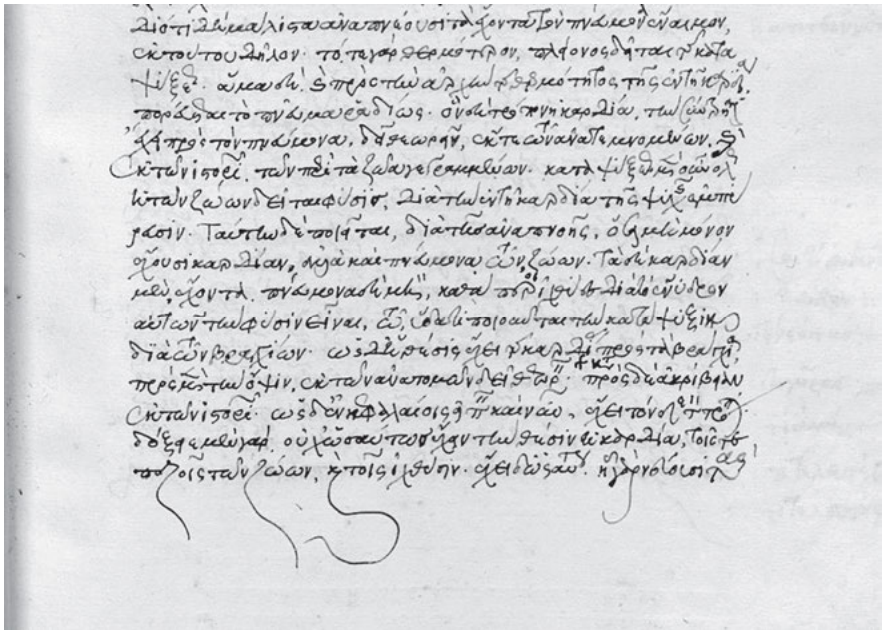 Διότι δὲ μάλιστα ἀναπνέουσι τὰ ἔχοντα τὸν πνεύμονα ἔναιμον,
ἐκ τούτου δῆλον· τό, τε γὰρ θερμότερον, πλείονος δεῖται τῆς κατα
ψύξεως. ἅμα δὲ καὶ πρὸς τὴν ἀρχὴν τῆς θερμότητος τῆς ἐν τῇ καρδίᾳ
πορεύεται τὸ πνεῦμα ῥαδίως. ὃν δὲ τρόπον ἡ καρδία, τὴν
ἔχει πρὸς τὸν πνεύμονα, δεῖ θεωρεῖν, ἔκ τε τῶν ἀνατεμνομένων, καὶ
ἐκ τῶν ἱστοριῶν, τῶν περὶ τὰ ζῶα γεγραμμένων. καταψύξεως μὲν οὖν ὅλως
ἡ τῶν ζώων δεῖται φύσις, διὰ τὴν ἐν τῇ καρδία τῆς ψυχῆς ἐμπύ
ρωσιν. Ταύτην δὲ ποιεῖται, διὰ τῆς ἀναπνοῆς, ὅσα μὴ μόνον
ἔχουσι καρδίαν, ἀλλὰ καὶ πνεύμονα τῶν ζώων. Τὰ δὲ καρδίαν
μὲν ἔχοντα, πνεύμονα δὲ μὴ, καθάπερ οἱ ἰχθύες διὰ τὸ ἔνυδρον
αὐτῶν τὴν φύσιν εἶναι, τῷ ὕδατι ποιοῦνται τὴν κατάψυξιν
διὰ τῶν βραγχίων. ὡς δ' ἡ θέσις ἔχει τῆς καρδίας πρὸς τὰ βράγχια,
πρὸς μὲν τὴν ὄψιν, ἐκ τῶν ἀνατομῶν δεῖ θεωρεῖν. πρὸς δὲ ἀκρίβειαν
ἐκ τῶν ἱστοριῶν. ὡς δ' ἐν κεφαλαίοις εἰπεῖν καὶ νῦν, ἔχει τόνδε τὸν τρόπον.
δόξειε μὲν γὰρ οὐχ ὡσαύτως ἔχειν τὴν θέσιν ἡ καρδία, τοῖς τε
πεζοῖς τῶν ζώων, καὶ τοῖς ἰχθύσιν. ἔχει δ' ὡσαύτως. ᾗ γὰρ νεύουσι τὰς